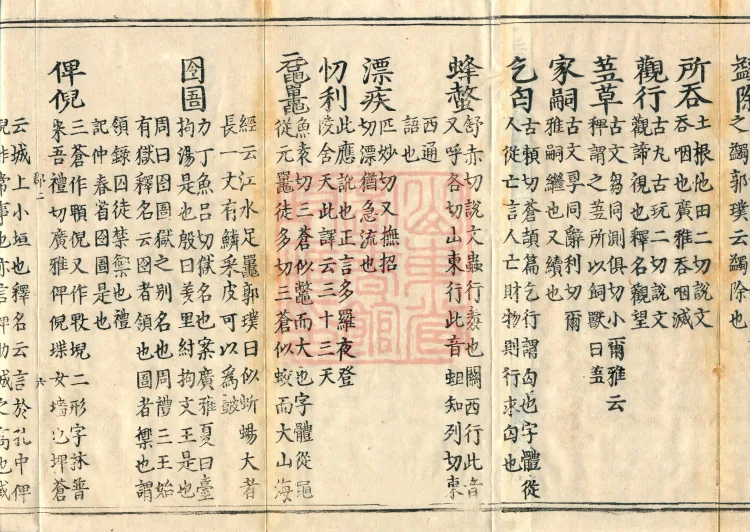 之蠲郭璞云蠲除也
所吞 土根他田二切說文
吞咽也廣雅吞咽滅
觀行 古丸古玩二切說文
觀諦視也釋名觀望
草 古文芻同測俱切小爾雅云
稈謂之所以飼獸曰
家嗣 古文孠同辭利切爾
雅嗣繼也又續也
乞匃 古賴切蒼頡篇乞行謂匃也字體從
人從亡言人亡財物則行求匃也
蜂螫 舒赤切說文蟲行毒也關西行此音
又呼各切山東行此音蛆知列切東
西通
語也
漂疾 匹妙切又撫招
切漂猶急流也
忉利 此應訛也正言多羅夜登
陵舍天此譯云三十三天
黿鼉 魚袁切三蒼似鼈而大也字體從黽
從元鼉徒多切三蒼似蛟而大山海
經云江水足鼉郭璞曰似蜥蜴大者
長一丈有鱗采皮可以為皷
囹圄 力丁魚吕切獄名也案廣雅夏曰臺
拘湯是也殷曰羑里紂拘文王是也
周曰囹圄獄之别名也周禮三王始
有獄釋名云囹者領也圄者禦也謂
領録囚徒禁禦也禮
記仲春省囹圄是也
俾倪 三蒼作倪又作堄二形字詁普
米吾禮切廣雅俾倪堞女墻也埤蒼
云城上小垣也釋名云言於孔中俾
倪非常事也亦言俾助城之高也或